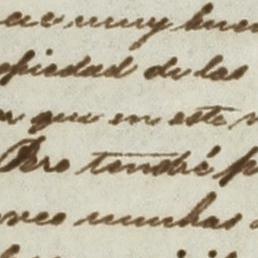 muy buen
piedad de las
que en este
Pero tendré p
muchas